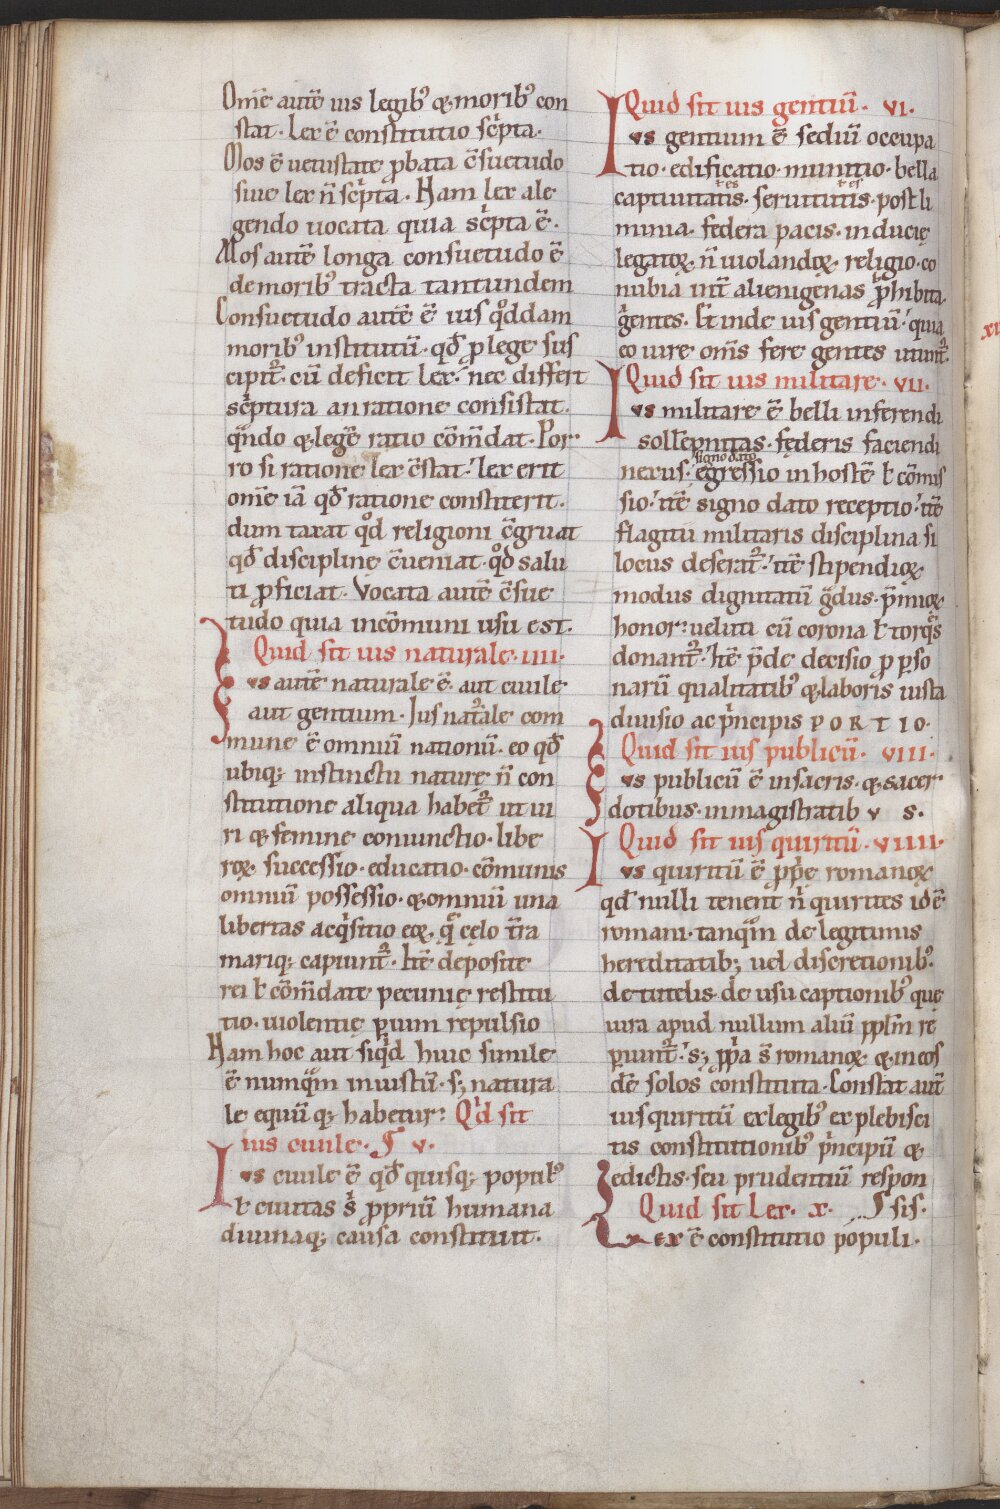 Om̄e autē ius legib᾽ & morib᾽ con
stat. Lex ē constitutio sc̓pta.
Mos ē uetustate ꝓbata c̄suetudo
siue lex n̄ sc̓pta. Nam lex ale
gendo uocata quia sc̓pta ē.
Mos autē longa consuetudo ē
de morib᾽ tracta tantundem
Consuetudo autē ē ius qͦddam
morib᾽ institutū. qđ ꝓ lege sus
cipit᷑. cū deficit lex.᾽ nec differt
sc̓ptura an ratione consistat.
qn̄do & legē ratio cōm̄dat. Por
ro si ratione lex c̄stat.᾽ lex erit
om̄e iā qđ ratione constiterit.
dum taxat qͦd religioni c̄gruat
qđ disciplinę c̄ueniat. qͦd salu
ti ꝓficiat. Vocata autē c̄sue
tudo quia incōmuni usu est.
Quid sit ius naturale. iiii.
Ius autē naturale ē. aut ciuile
aut gentium. Ius nat᷑ale com
mune ē omniū nationū. eo qđ
ubiq; instinctu naturę n̄ con
stitutione aliqua habet᷑ ut ui
ri & femine coniunctio. libe
roꝝ successio. educatio. cōmunis
omniū possessio. & omniū una
libertas acq̓sitio eoꝝ q̄ cęlo t̄ra
mariq; capiunt᷑. Itē deposite
rei ł cōm̄date pecunię restitu
tio. uiolentię ꝑ uim repulsio
Nam hoc aut siq̓d huic simile
ē numqͣm iniustū. s; natura
le equū q; habetur: Q̓d sit
ius ciuile. ¶ v.
Ius ciuile ē qđ quisq; popul᾽
ł ciuitas s̓ ꝓpriū humana
diuinaq; causa constituit.
Quid sit ius gentiū. vi.
Ius gentium ē sediū occupa
tio. edificatio. munitio. bella
captiuitatis. seruitutis. postli
tes tes
minia. federa pacis. inducię
legatoꝝ n̄ uiolandoꝝ religio. co
nubia int̄ alienigenas ꝓhibita.
gentes. Et inde ius gentiū.᾽ quia
eo iure om̄s fere gentes utunt᷑.
Quid sit ius militare. vii.
Ius militare ē belli inferendi
sollēpnitas. fęderis faciendi
signo dato
nexus.᾽ egressio in hostē ł cōmis
sio.᾽ itē signo dato receptio.᾽ itē
flagitii militaris disciplina si
locus deserat᷑.᾽ itē stipendioꝝ
modus dignitatū gͣdus. p̄mioꝝ
honor: ueluti cū corona ł torq̄s
donant᷑.᾽ Itē p̄de decisio ꝓ ꝑso
narū qualitatib᾽ & laboris iusta
diuisio ac p̓ncipis PORTIO.
Quid sit ius publicū. viii.
Ius publicū ē in sacris. & sacer
dotibus. in magistratib v s.
Quid sit ius quiritū. viiii.
Ius quiritū ē ꝓp̓ę romanoꝝ
qđ nulli tenent n̓ quirites idē
romani. tanqͣm de legitimis
hereditatib; uel discretionib᾽.
de tutelis. de usu captionib᾽ quę
iura apud nullum aliū ppl̄m re
ꝑiunt᷑.᾽ s; ꝓp̓a s̄ romanoꝝ & in eos
dē solos constituta. Constat autē
ius quiritū ex legib᾽ ex plebisci
tis constitutionib᾽ p̓ncipū &
edictis. seu prudentiū respon
Quid sit Lex. x. ¶ sis.
Lex ē constitutio populi.